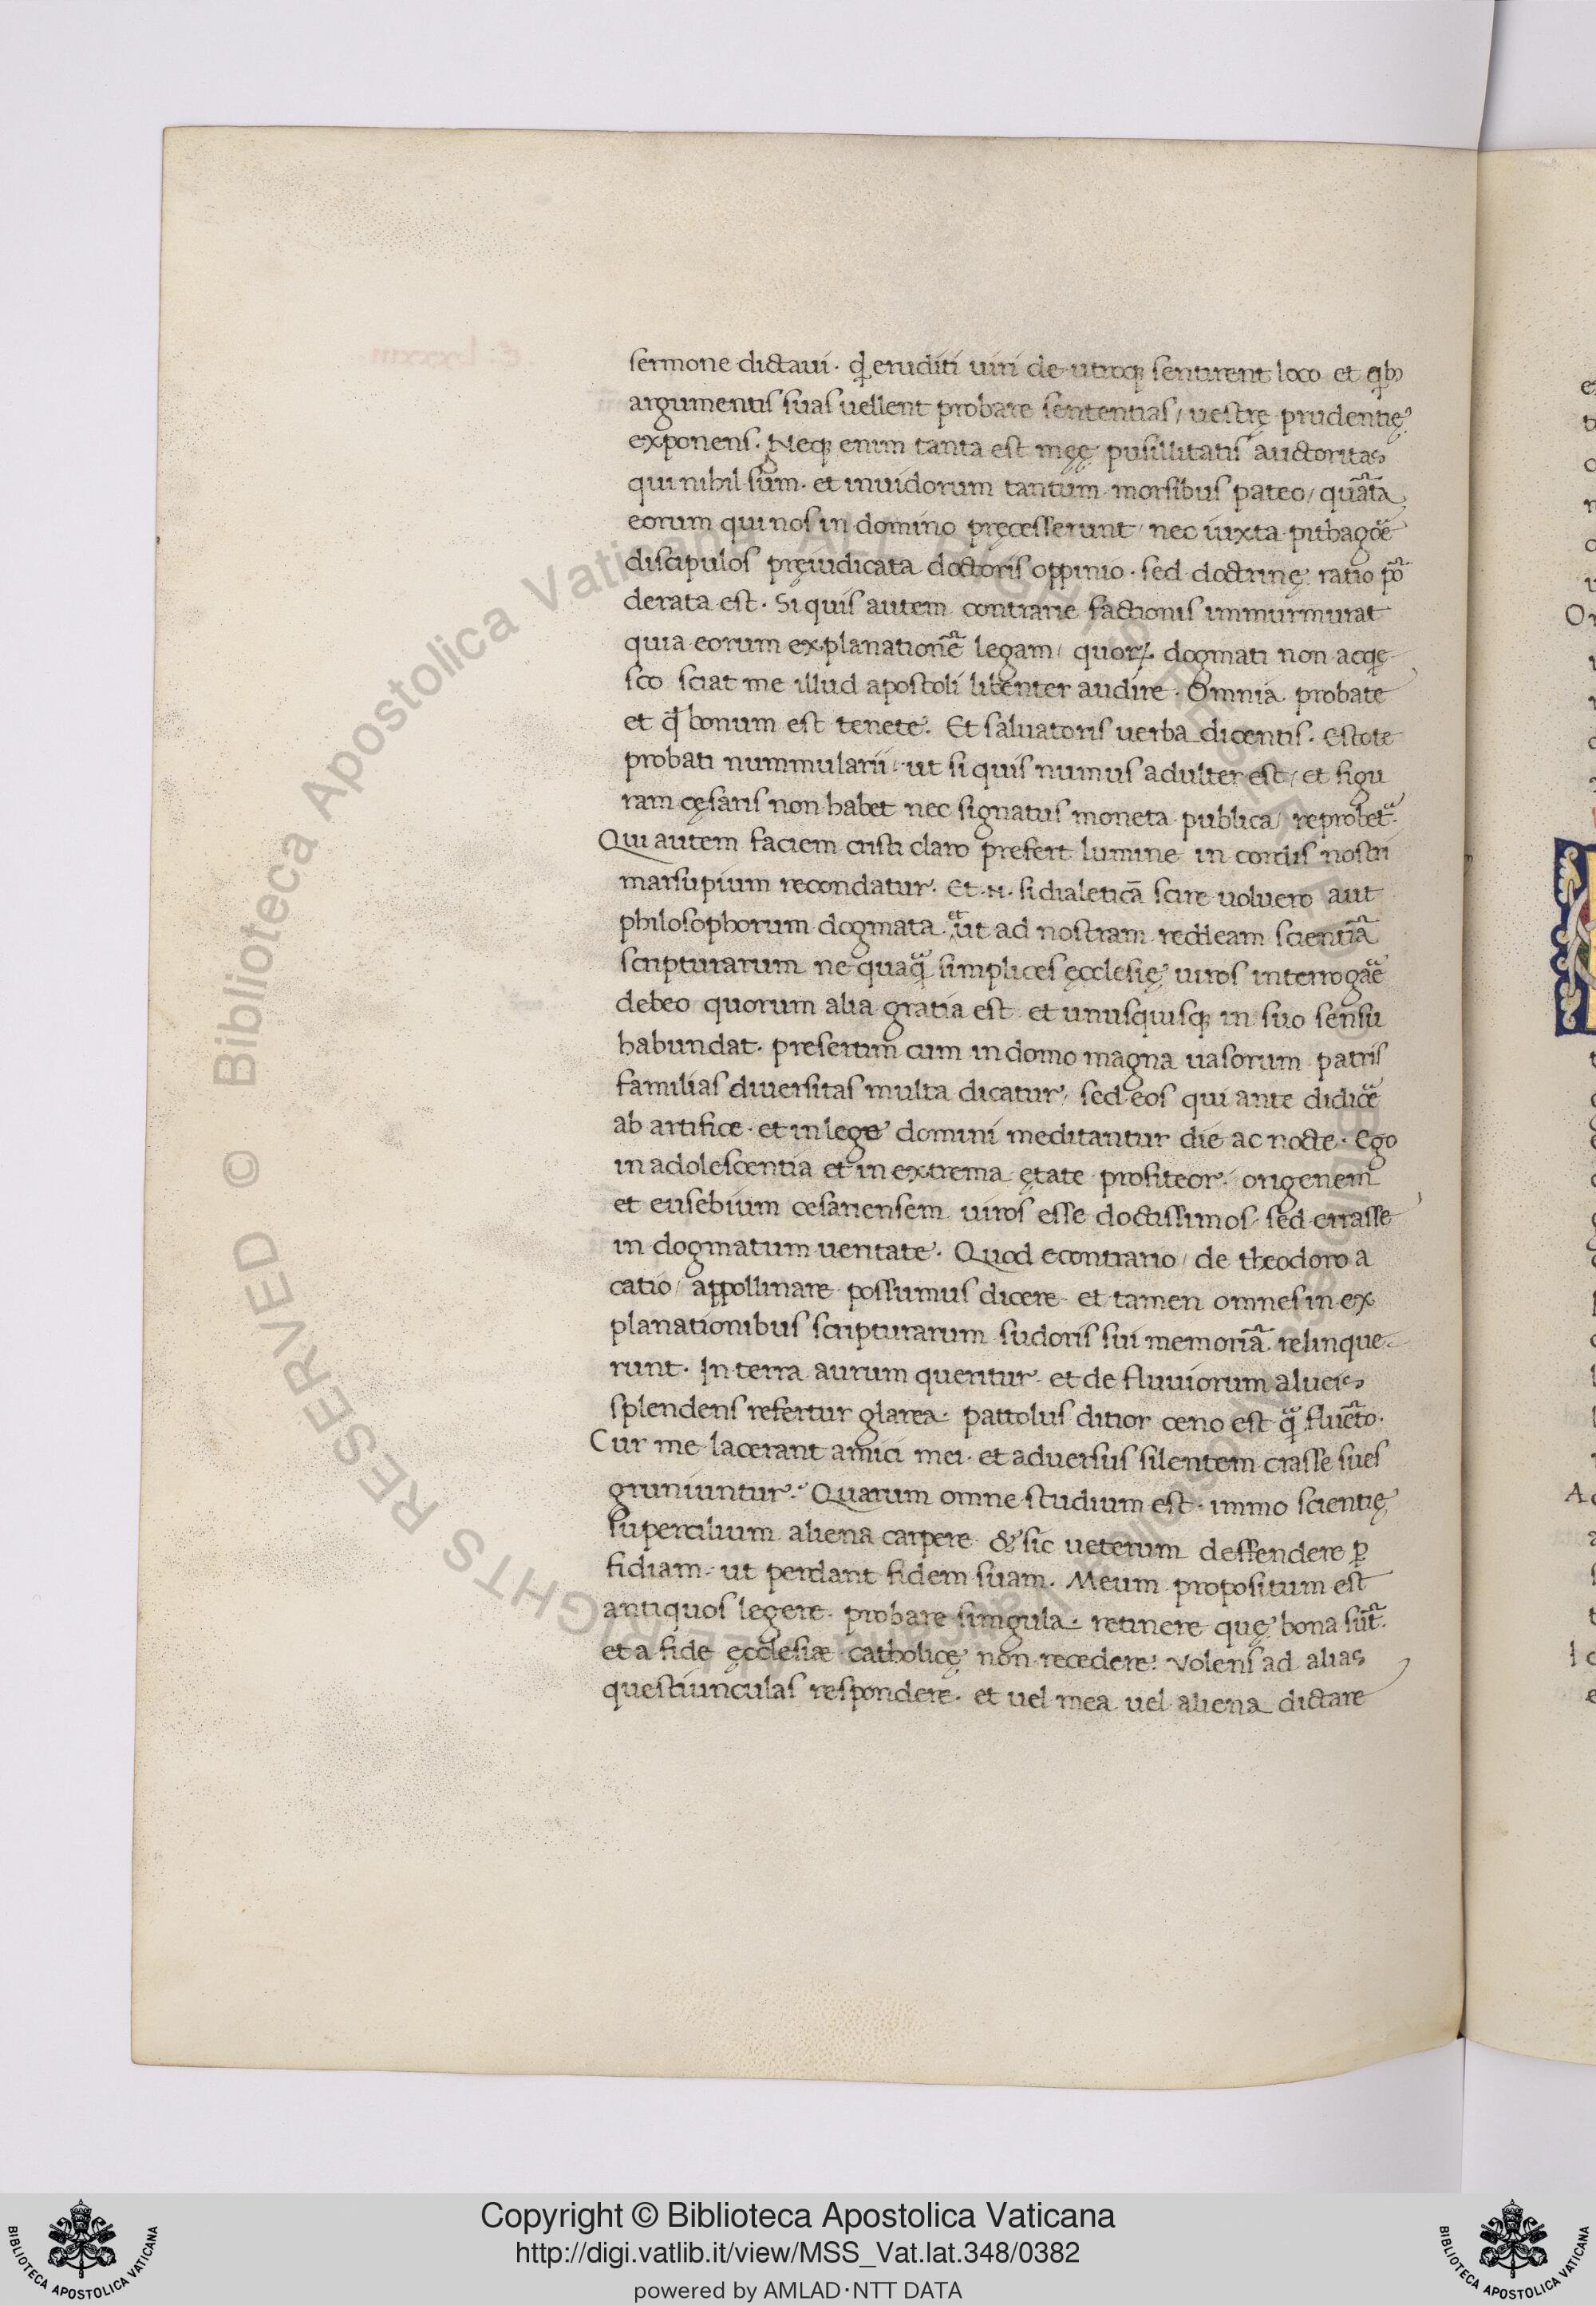 sermone dictaui · qđ eruditi uiri de utroqꝫ sentirent loco et qbꝫ
argumentis suas uellent probare sententias / uestrę prudentię
exponens · Neqꝫ enim tanta est męę pusillitatis auctoritas
qui nihil sum · et inuidorum tantum morsibus pateo / quāta
eorum qui nos in domino pręcesserunt / nec iuxta pithagōe
discipulos pręiudicata doctoris oppinio · sed doctrinę ratio pō
derata est · Si quis autem contrarie factionis immurmurat
quia eorum explanationē legam / quoꝝ dogmati non acqe
sco sciat me illud apostoli libenter audire · Omnia probate
et qđ bonum est tenete · Et saluatoris uerba dicentis · Estote
probati nummularii · ut si quis numus adulter est / et figu
ram cęsaris non habet nec signatus moneta publica / reprobet᷑ ·
Qui autem faciem cristi claro prefert lumine in cordis nostri
marsupium recondatur · Et · N · si dialeticā scire uoluero aut
philosophorum dogmata · et ut ad nostram redeam scientiā
scripturarum ne quaq̄ simplices ęcclesię uiros interrogāe
debeo quorum alia gratia est et unusquisqꝫ in suo sensu
habundat · presertim cum in domo magna uasorum patris
familias diuersitas multa dicatur / sed eos qui ante didicē
ab artifice · et in lege domini meditantur die ac nocte · Ego
in adolescentia et in extrema ętate profiteor · origenem
et eusebium cesariensem uiros esse doctissimos · sed errasse
in dogmatum ueritate · Quod econtrario / de theodoro a
catio / appollinare possumus dicere · et tamen omnes in ex
planationibus scripturarum sudoris sui memoriā relinque
runt · In terra aurum queritur · et de fluuiorum alueis
splendens refertur glarea · pattolus ditior ceno est q̄ fluēto ·
Cur me lacerant amici mei · et aduersus silentem crasse sues
gruniuntur · Quarum omne studium est · immo scientię
supercilium aliena carpere & sic ueterum deffendere ꝑ
fidiam · ut perdant fidem suam · Meum propositum est
antiquos legere · probare singula · retinere quę bona sūt ·
et a fide ęcclesiæ catholicę non recedere · Volens ad alias
questiunculas respondere · et uel mea uel aliena dictare
© Biblioteca Apostolica Vaticana
ALL RIGHTS RESERVED
Copyright © Biblioteca Apostolica Vaticana
http://digi.vatlib.it/view/MSS_Vat.lat.348/0382
powered by AMLAD·NTT DATA
BIBLIOTECA APOSTOLICA VATICANA
BIBLIOTECA APOSTOLICA VATICANA